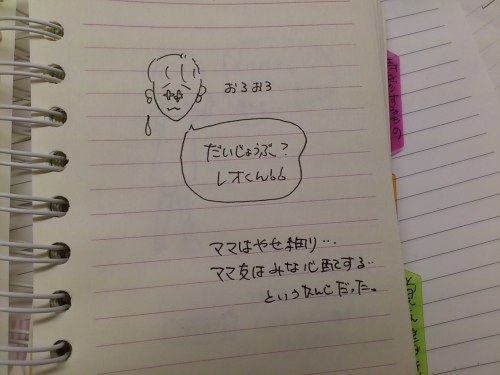 おろおろ
だいじょうぶ?
レオくん66
ママはやせ細り…
ママ友はみな心配する…
というかんじだった。